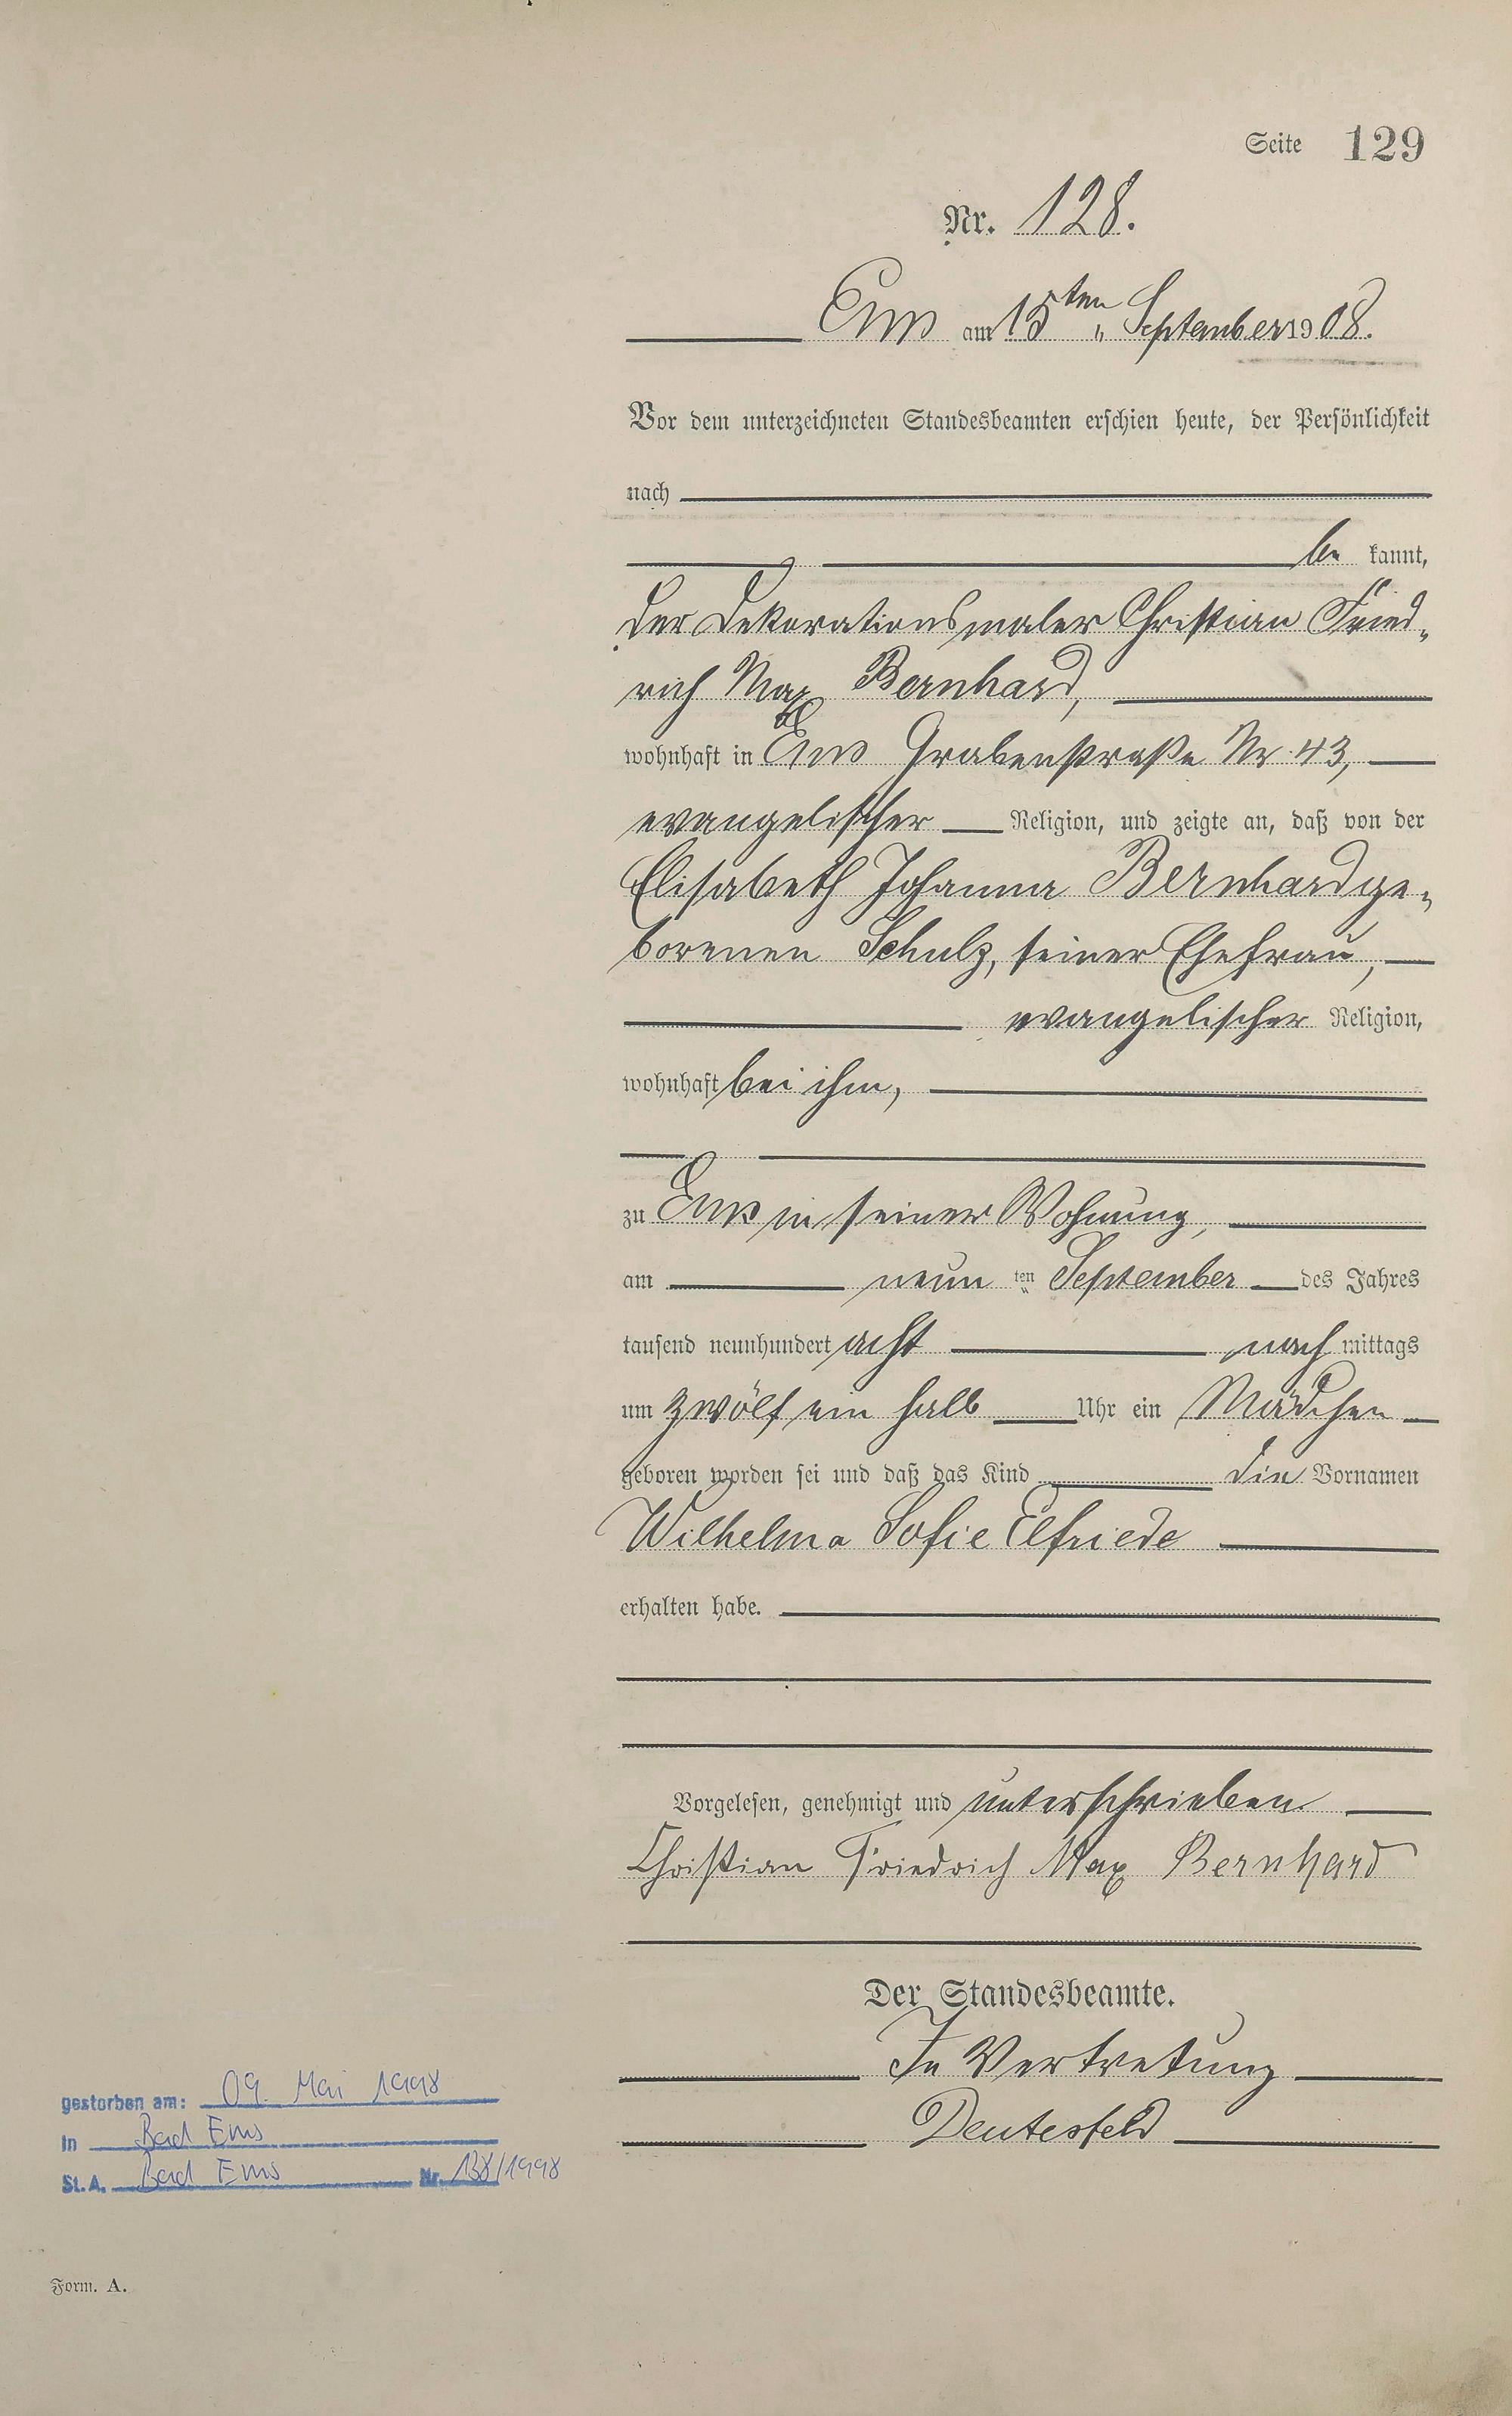 Seite 129
Nr. 128.
Ems am 15ten „ September 1908.
Vor dem unterzeichneten Standesbeamten erschien heute, der Persönlichkeit
nach
be kannt,
der Dekorationsmaler Christian Fried„
rich Max Bernhard,
wohnhaft in Ems Grabenstraße Nr. 43,
evangelischer Religion, und zeigte an, daß von der
Elisabeth Johanna Bernhard ge„
borenen Schulz, seiner Ehefrau,
evangelischer Religion,
wohnhaft bei ihm,
zu Ems in seiner Wohnung,
am neun ten September des Jahres
tausend neunhundert acht nach mittags
um zwölf ein halb Uhr ein Mädchen
geboren worden sei und daß das Kind die Vornamen
Wilhelma Sofie Elfriede
erhalten habe.
Vorgelesen, genehmigt und unterschrieben.
Christian Friedrich Max Bernhard
Der Standesbeamte.
In Vertretung
Deutesfeld
gestorben am: 09. Mai 1998
in Bad Ems
St. A. Bad Ems Nr. 138/1998
Form. A.